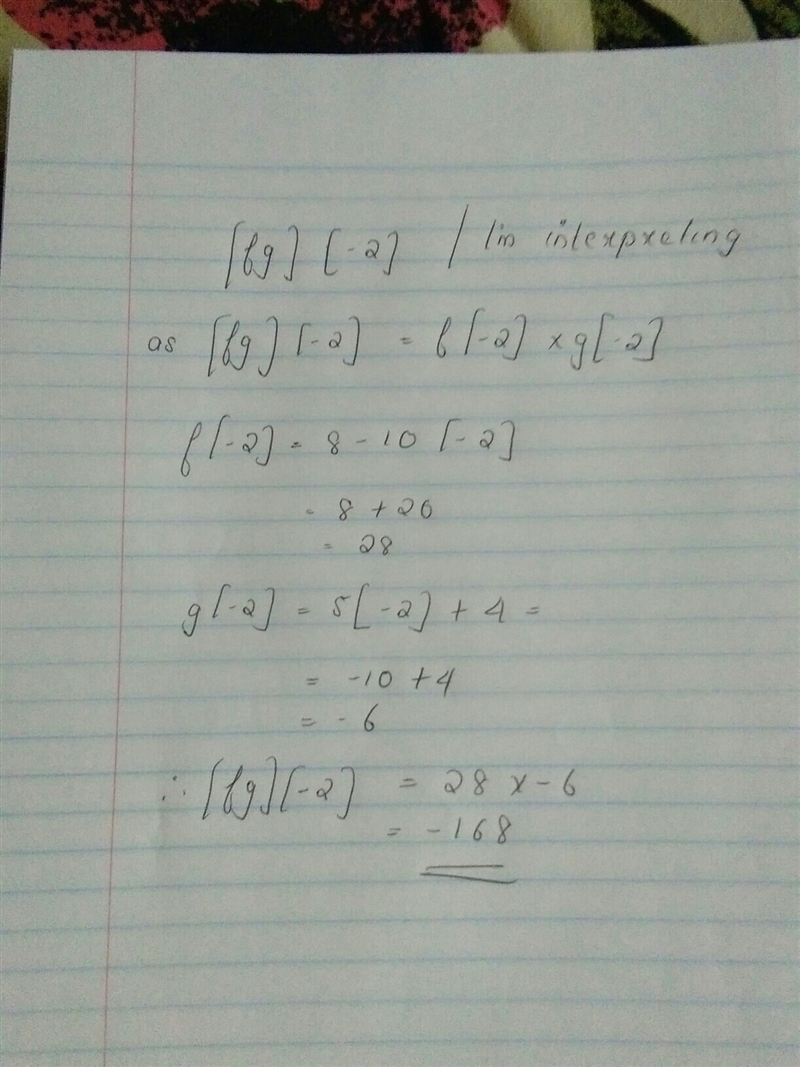 [fg] [-2] / Im interpreting
as [fg] [-2] = f[-2] x g[-2]
f[-2] = 8 - 10 [-2]
= 8 + 20
= 28
g[-2] = 5[-2] + 4 =
= -10 + 4
= -6
∴ [fg][-2] = 28 x -6
= -168